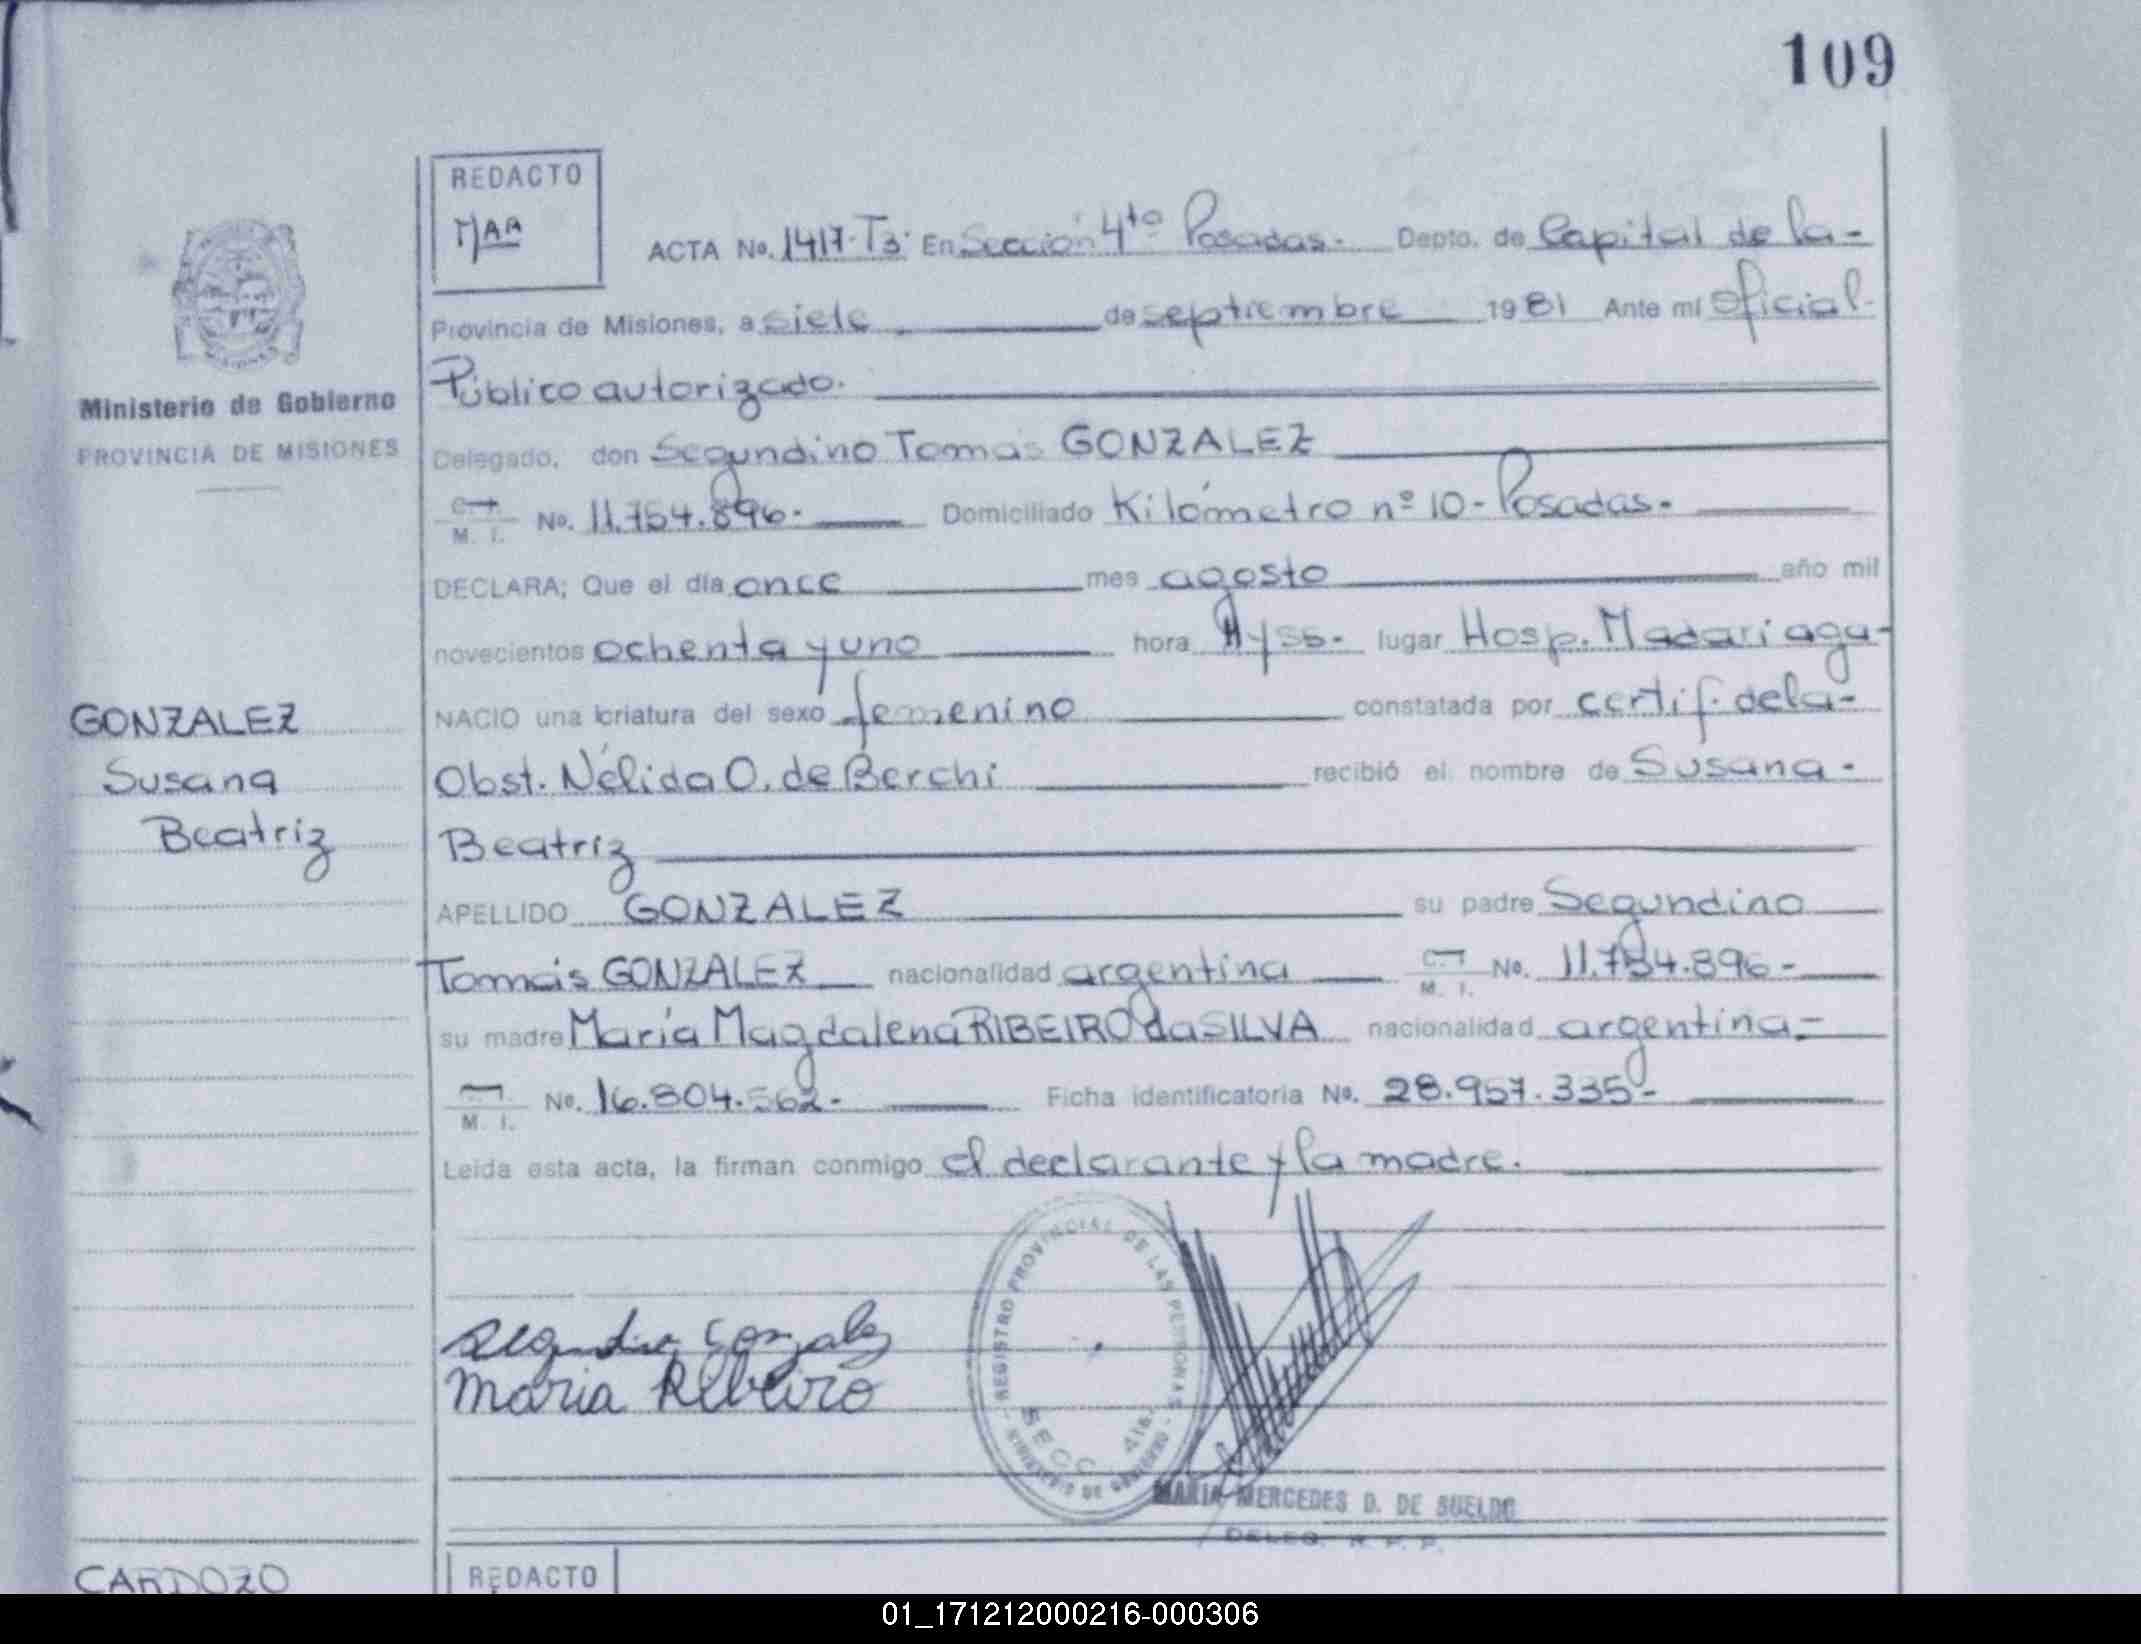 109
REDACTO
ACTA No. 1417-T3- En Sección 4ta Posadas.- Depto. de Capital de la-
Provincia de Misiones, a siete de septiembre 1981 Ante mi Oficial-
Ministerio de Gobierno
PROVINCIA DE MISIONES
Público autorizado.
Delegado, don Segundino Tomas GONZALEZ
M. I. No. 11.754.896.- Domiciliado Kilómetro nº 10 - Posadas.-
DECLARA; Que el día once mes agosto año mil
novecientos ochenta y uno hora lugar Hosp. Madariaga-
GONZALEZ
Susana
Beatriz
NACIO una criatura del sexo femenino constatada por certif. de la-
Obst. Nélida O. de Berchi recibió el nombre de Susana-
Beatriz
APELLIDO GONZALEZ su padre Segundino
Tomás GONZALEZ nacionalidad argentina M. I. No. 11.754.896-
su madre María Magdalena RIBEIRO da SILVA nacionalidad argentina-
M. I. No. 16.804.562.- Ficha identificatoria No. 28.957.335-
Leida esta acta, la firman conmigo el declarante y la madre.
REGISTRO PROVINCIAL DE LAS PERSONAS - MINISTERIO DE GOBIERNO -
SECC. 4ta.
Segundino Gonzalez
Maria Ribeiro
MARIA MERCEDES D. DE SUELDO
DELEG. R. P. P.
CARDOZO
REDACTO
01_171212000216-000306